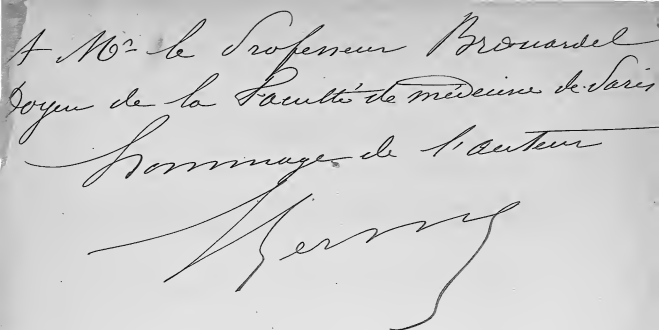 A Mr le Professeur Brouardel
Doyen de la Faculté de médecine de Paris
hommage de l'auteur